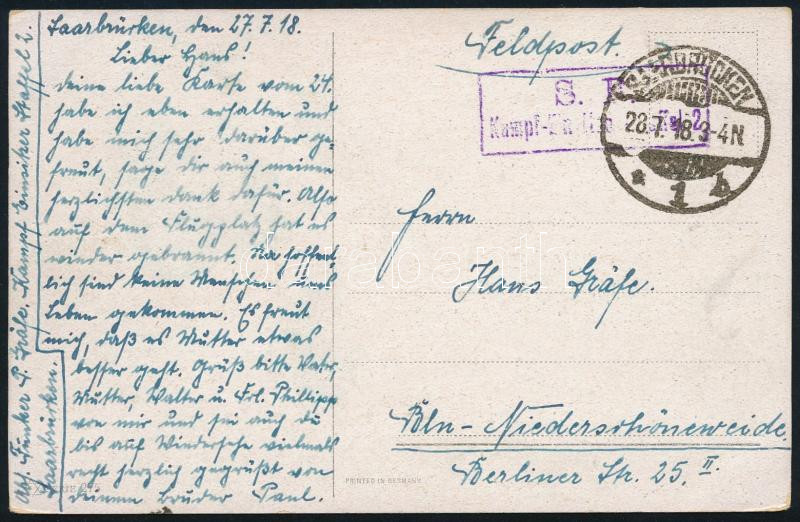 Saarbrücken, den 27.7.18.
Lieber Hans!
Deine liebe Karte vom 24.
habe ich eben erhalten und
habe mich sehr darüber ge-
freut, sage dir auch meinen
herzlichsten dank dafür. Also
auf dem Flugplatz hat es
wieder gebrannt. Na hoffent-
lich sind keine Menschen ums
Leben gekommen. Es freut
mich, daß es Mutter etwas
besser geht. Grüß bitte Vater,
Mutter, Walter u. Frl. Phillipp
von mir und sei auch du
bis auf Wiedersehe vielmals
recht herzlich gegrüßt von
deinem Bruder Paul.
Abs. Funker P. Gräfe, Kampf Einsitzer Staffel 2.
Saarbrücken.
Feldpost.
S. B.
Kampf-Einsitzer-Staffel 2
SAARBRÜCKEN
28.7.18.3-4N
* 1 b
Herrn
Hans Gräfe.
Bln-Niederschöneweide.
Berliner Str. 25 II.
PRINTED IN GERMANY
darabanth